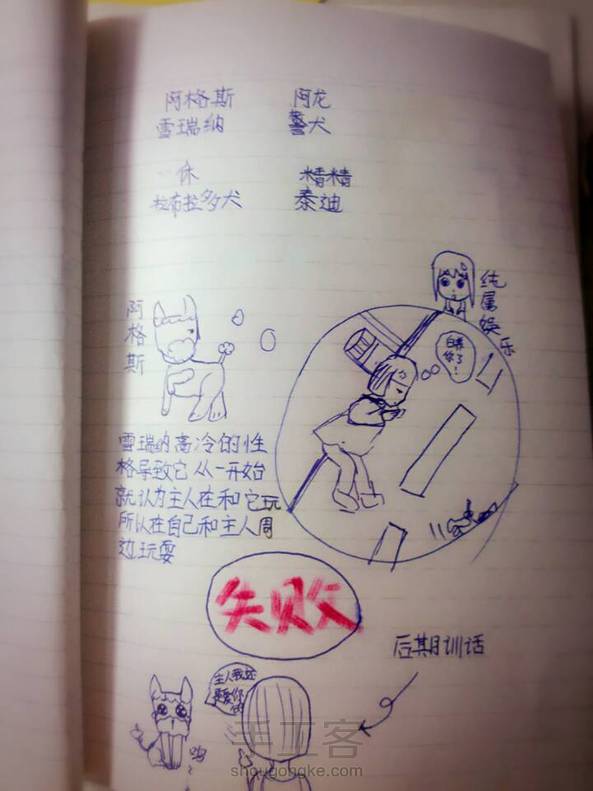 阿格斯 阿龙
雪瑞纳 警犬
休 精精
拉布拉多犬 泰迪
阿格斯
纯属娱乐
白养你了!
雪瑞纳高冷的性
格导致它从一开始
就认为主人在和它玩
所以在自己和主人周
边玩耍
失败
后期训话
主人我还
是爱你
的
呜
手工客
shougongke.com